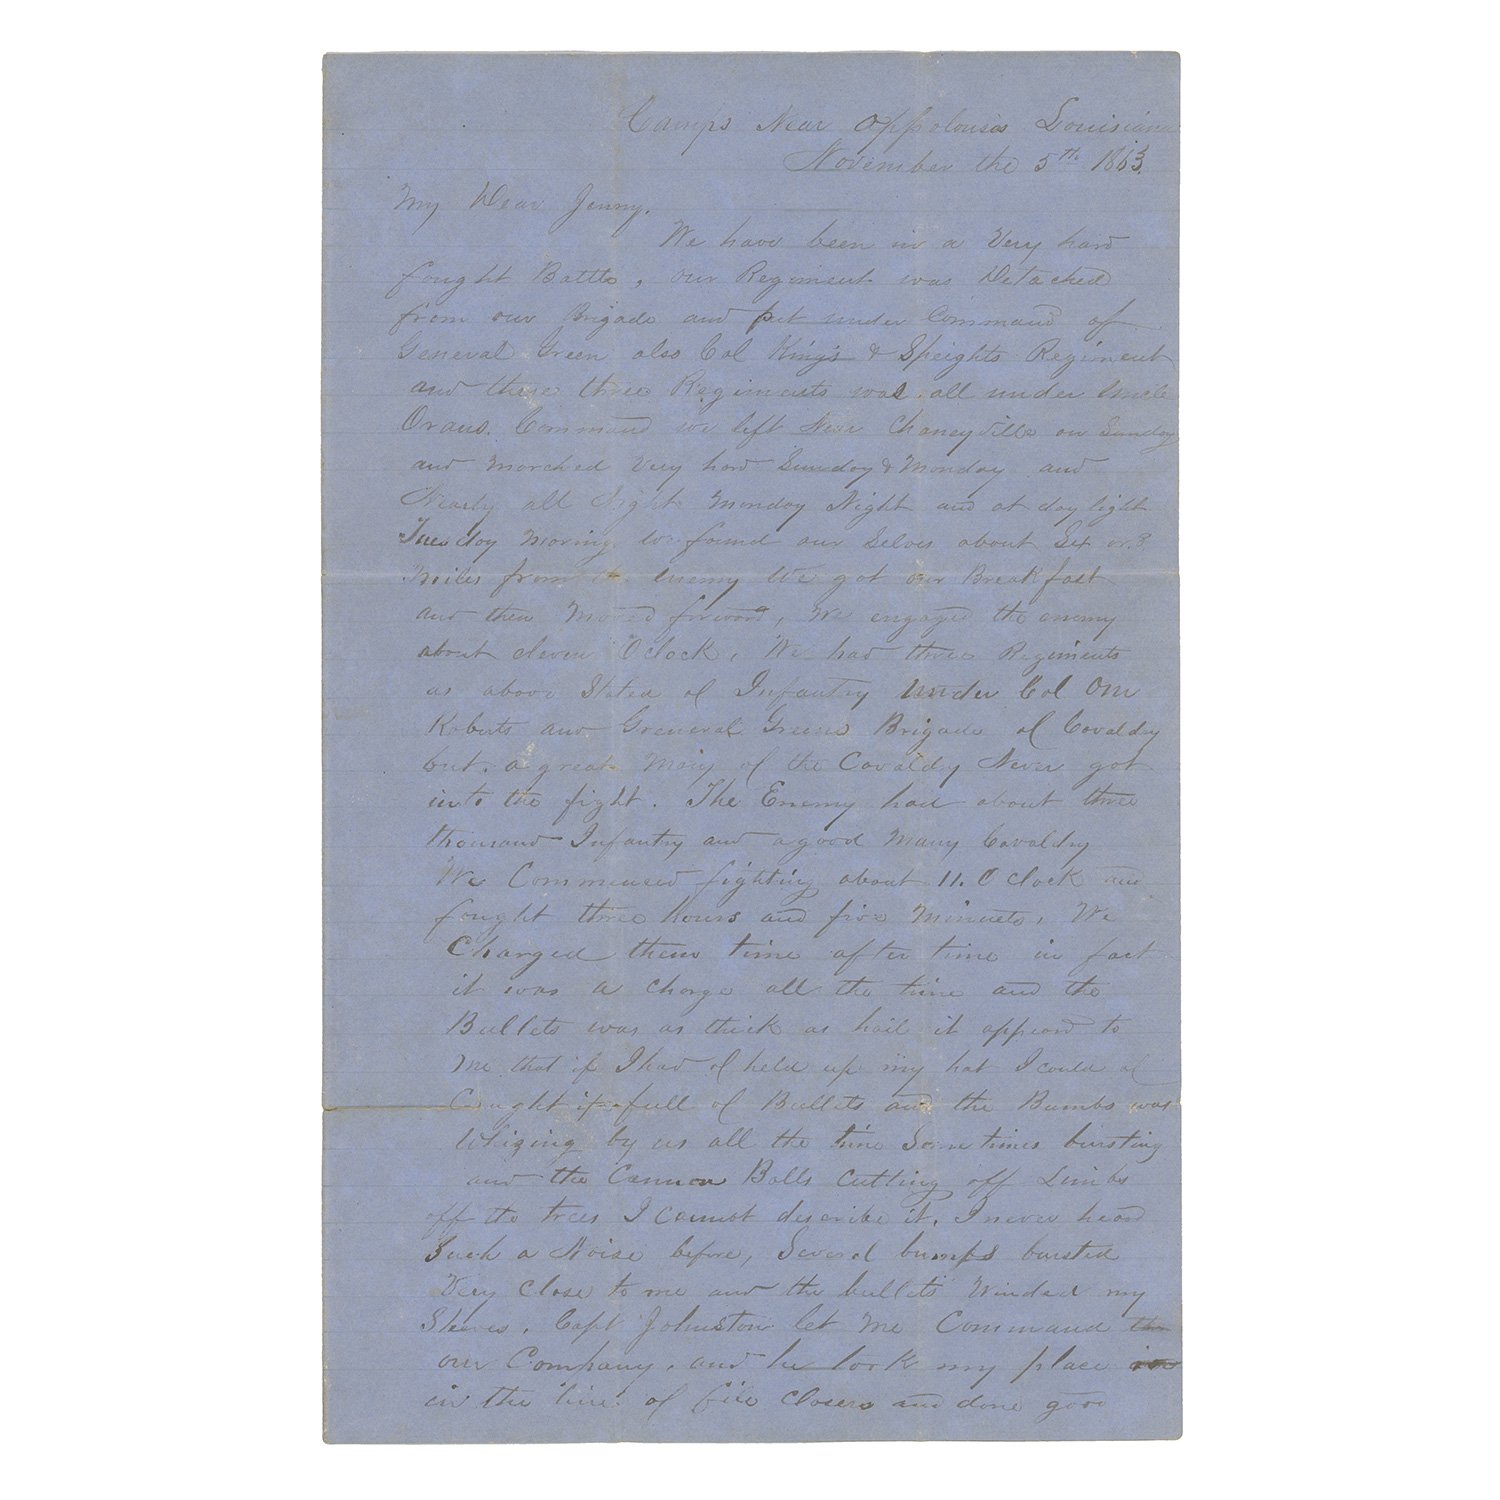 Camps Near Oppolousas Louisiana
November the 5th 1863.
My Dear Jenny.
We have been in a Very hard
fought Battle, our Regiment was Detached
from our Brigade and put under Command of
General Green also Col King's & Speights Regiment
and these three Regiments was all under Uncle
Orans. Command we left Near Chaneyville on Sunday
and marched Very hard Sunday & Monday and
Nearly all Night Monday Night and at day light
Tuesday Morning we found our Selves about Six or 8
Miles from the enemy We got our Breakfast
and then Moved forward, We engaged the enemy
about eleven O'clock, We had three Regiments
as above Stated of Infantry under Col Om
Roberts and General Greens Brigade of Cavaldry
but a great Many of the Cavaldry Never got
into the fight. The Enemy had about three
thousand Infantry and a good Many Cavaldry
We Commenced fighting about 11. O clock and
fought three hours and five Minuets, We
Charged them time after time in fact
it was a charge all the time and the
Bullets was as thick as hail it appeard to
Me that if I had of held up my hat I could of
Caught it full of Bullets and the Bumbs was
Whizing by us all the time Some times bursting
and the Cannon Balls cutting off Limbs
off the trees I cannot describe it. I never heard
Such a Noise before, Several bumbs bursted
Very Close to me and the bullets Winded my
Sleeves. Capt Johnston let Me Command the
our Company, and he took my place in
in the line of file closers and done good